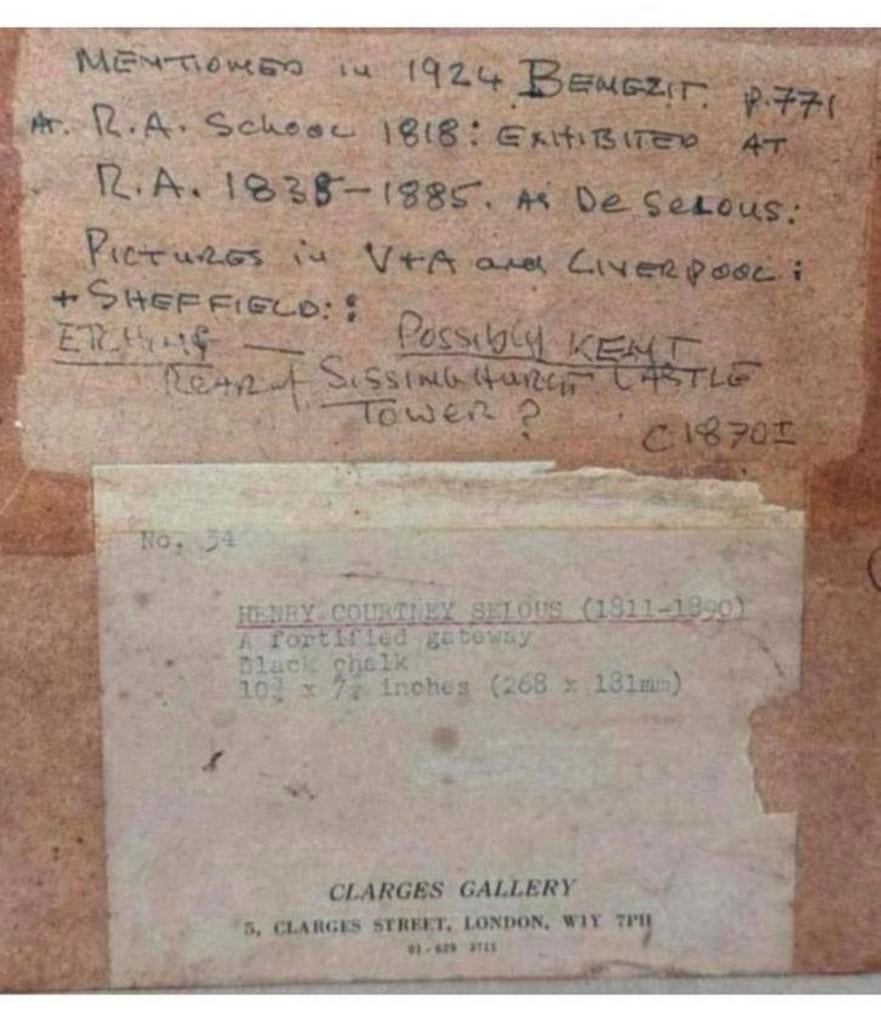 MENTIONED in 1924 BENEZIT. P.771
At. R.A. School 1818: EXHIBITED AT
R.A. 1835-1885. As De Selous:
PICTURES in V+A and LIVERPOOL:
+ SHEFFIELD::
ETCHING — Possibly KENT
Rear of SISSINGHURST CASTLE
TOWER?
C1870±
No. 34
HENRY COURTNEY SELOUS (1811-1890)
A fortified gateway
Black chalk
10¾ x 7¼ inches (268 x 181mm)
CLARGES GALLERY
5, CLARGES STREET, LONDON, W1Y 7PH
01-629 3715